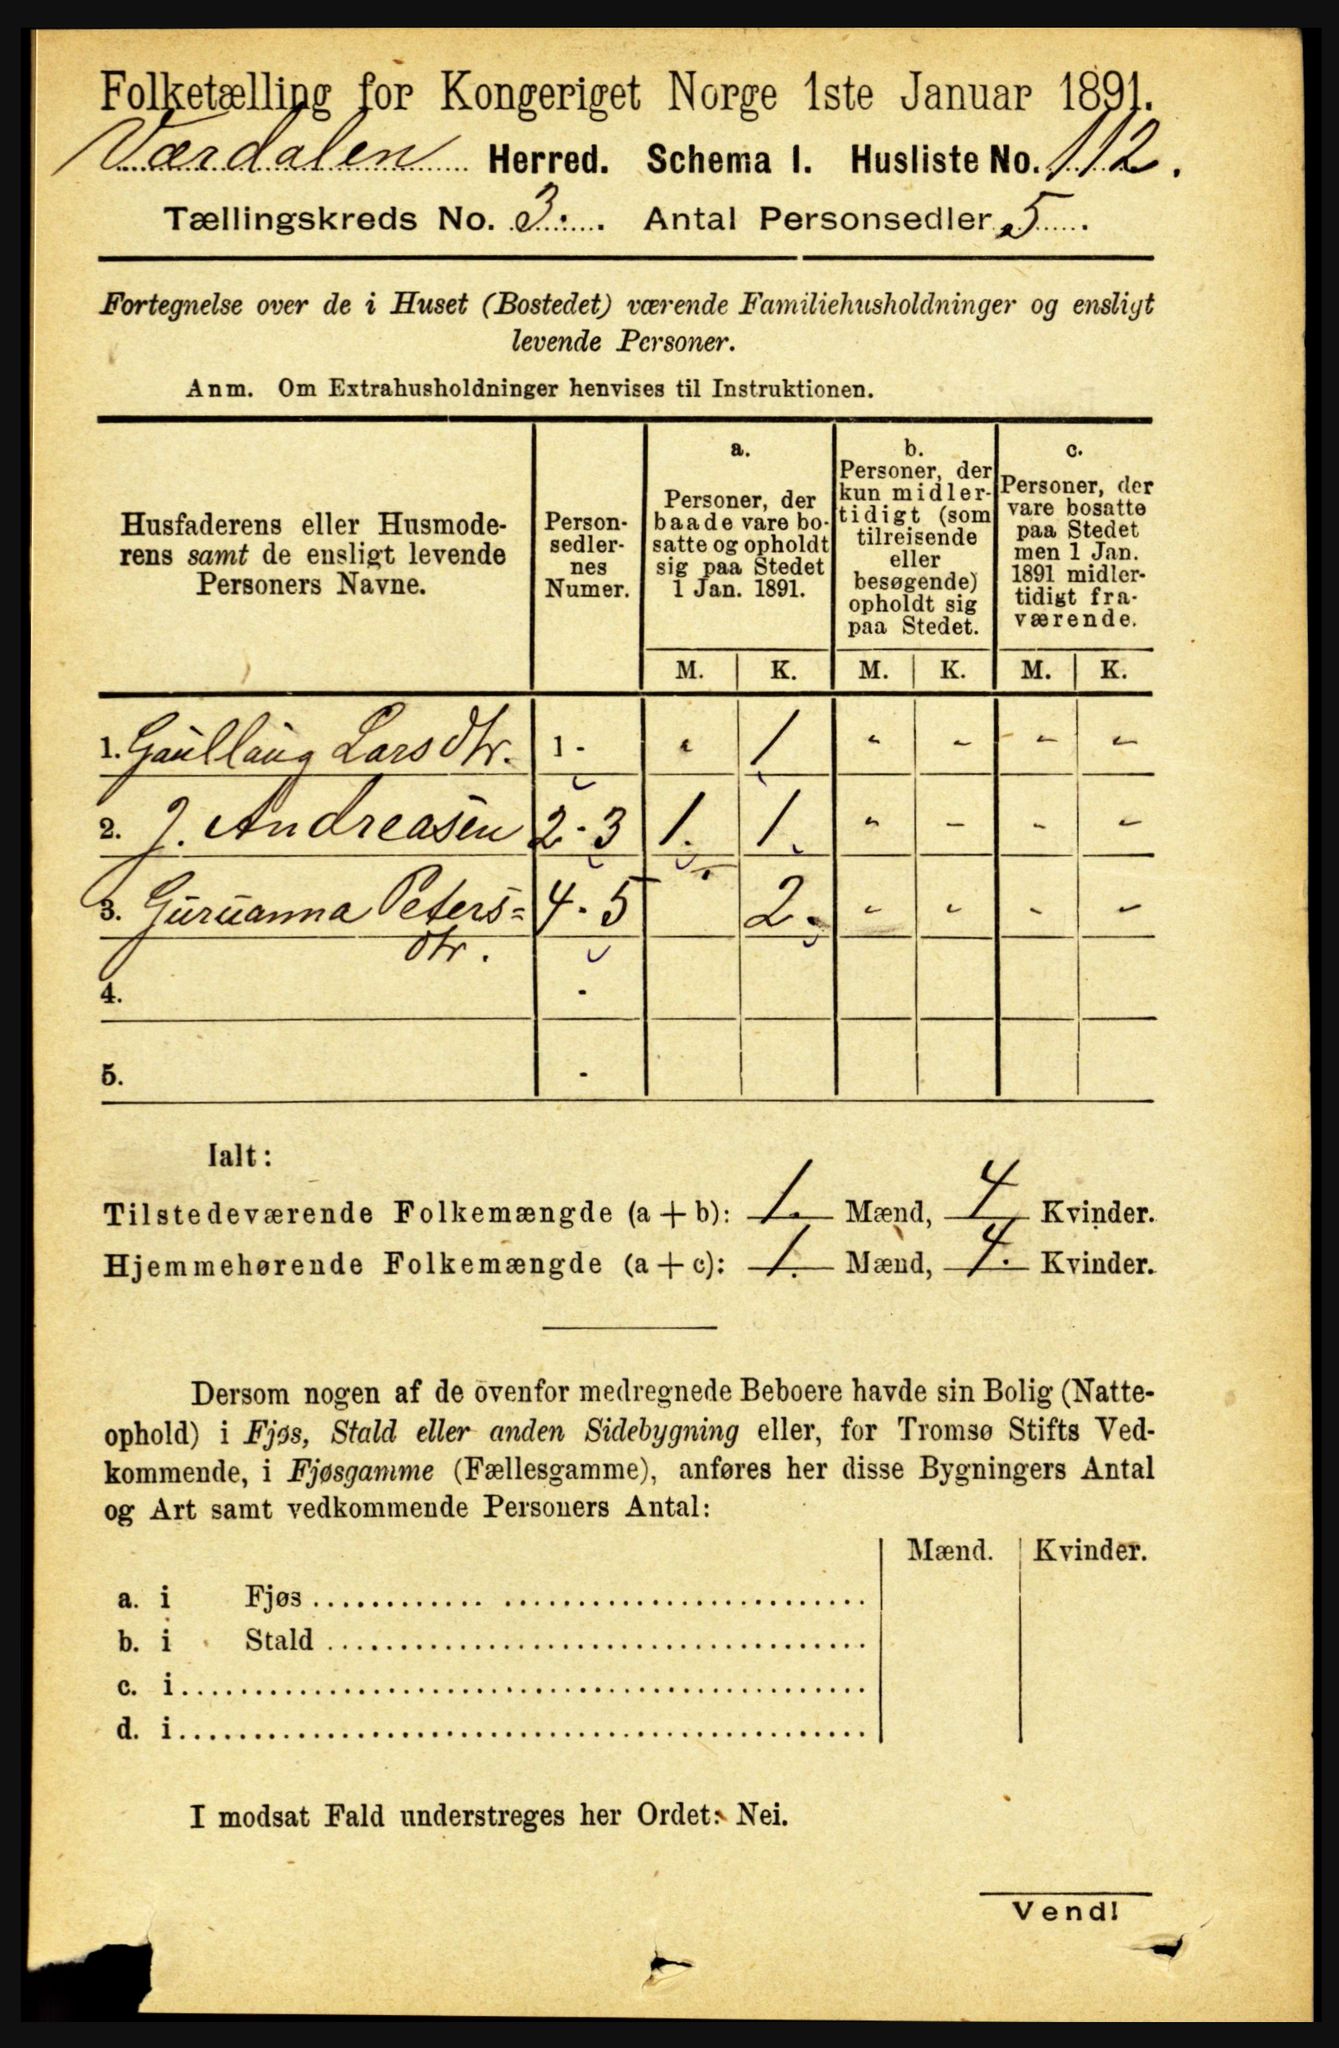 Folketælling for Kongeriget Norge 1ste Januar 1891.
Værdalen Herred. Schema I. Husliste No. 112.
Tællingskreds No. 3. Antal Personsedler 5.
Fortegnelse over de i Huset (Bostedet) værende Familiehusholdninger og ensligt
levende Personer.
Anm. Om Extrahusholdninger henvises til Instruktionen.
Husfaderens eller Husmode-
rens samt de ensligt levende
Personers Navne.
Person-
sedler-
nes
Numer.
a.
Personer, der
baade vare bo-
satte og opholdt
sig paa Stedet
1 Jan. 1891.
b.
Personer, der
kun midler-
tidigt (som
tilreisende
eller
besøgende)
opholdt sig
paa Stedet.
c.
Personer, der
vare bosatte
paa Stedet
men 1 Jan.
1891 midler-
tidigt fra-
værende.
M. K. M. K. M. K.
1. Gaullaug Larsdtr. 1 - " 1 " - " "
2. J. Andreasen 2 - 3 1. 1. " - - "
3. Guruanna Peters=
dtr. 4 - 5 2 - " " - "
4. -
5. -
Ialt:
Tilstedeværende Folkemængde (a + b): 1. Mænd, 4 Kvinder.
Hjemmehørende Folkemængde (a + c): 1. Mænd, 4. Kvinder.
Dersom nogen af de ovenfor medregnede Beboere havde sin Bolig (Natte-
ophold) i Fjøs, Stald eller anden Sidebygning eller, for Tromsø Stifts Ved-
kommende, i Fjøsgamme (Fællesgamme), anføres her disse Bygningers Antal
og Art samt vedkommende Personers Antal:
Mænd. Kvinder.
a. i Fjøs
b. i Stald
c. i
d. i
I modsat Fald understreges her Ordet: Nei.
Vend!